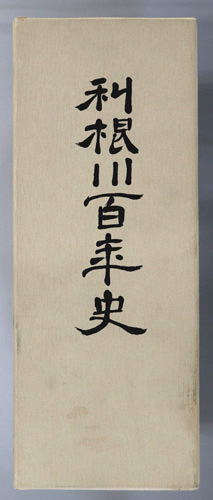 利根川百年史